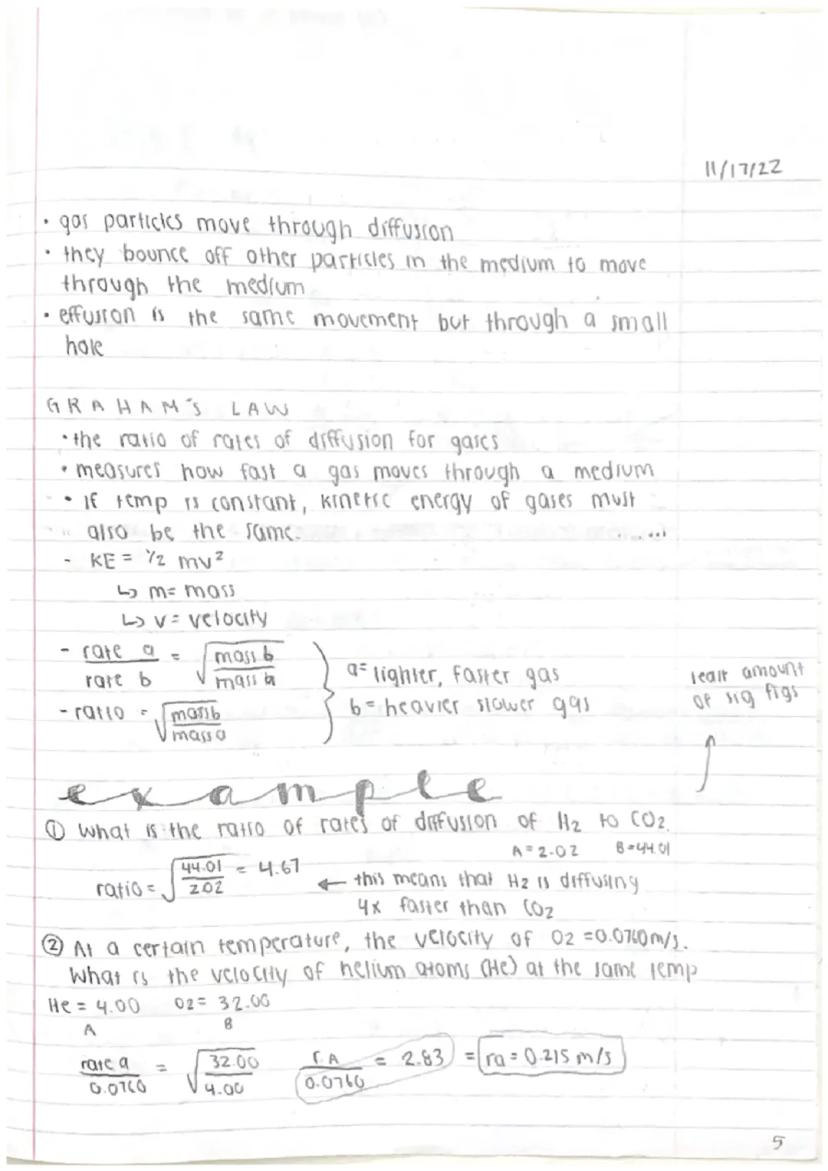 11/17/22
• gas particles move through diffusion
• they bounce off other particles in the medium to move
through the medium
• effusion is the same movement but through a small
hole
GRAHAM'S LAW
• the ratio of rates of diffusion for gases
• measures how fast a gas moves through a medium
• if temp is constant, kinetic energy of gases must
also be the same.
- KE = 1/2 mv²
↳ m= mass
↳ v= velocity
- rate a / rate b = √(mass b / mass a)
- ratio = √(mass b / mass a)
a= lighter, faster gas
b= heavier slower gas
least amount
of sig figs
example
① What is the ratio of rates of diffusion of H2 to CO2.
A=2.02 B=44.01
ratio = √(44.01 / 2.02) = 4.67
← this means that H2 is diffusing
4x faster than CO2
② At a certain temperature, the velocity of O2 = 0.0760 m/s.
What is the velocity of helium atoms (He) at the same temp
He = 4.00 O2 = 32.00
A B
rate a / 0.0760 = √(32.00 / 4.00) r A / 0.0760 = 2.83 = ra = 0.215 m/s
5